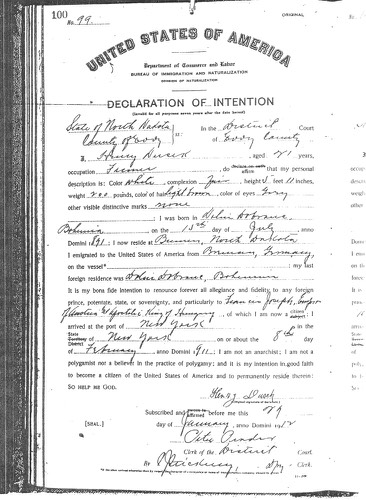 100
No. 99.
ORIGINAL
UNITED STATES OF AMERICA
Department of Commerce and Labor
BUREAU OF IMMIGRATION AND NATURALIZATION
DIVISION OF NATURALIZATION
DECLARATION OF INTENTION
(Invalid for all purposes seven years after the date hereof)
State of North Dakota
County of Eddy
ss:
In the District Court
of Eddy County
I, Henry, aged 21 years,
occupation Farmer, do declare on oath/affirm that my personal
description is: Color White, complexion Fair, height 5 feet 11 inches,
weight 200 pounds, color of hair light brown, color of eyes Grey
other visible distinctive marks none
; I was born in Dolni Dobrouc,
Bohemia, on the 15th day of July, anno
Domini 1891; I now reside at Bremen, North Dakota
I emigrated to the United States of America from Bremen, Germany,
on the vessel; my last
foreign residence was Dolni Dobrouc, Bohemia
It is my bona fide intention to renounce forever all allegiance and fidelity to any foreign
prince, potentate, state, or sovereignty, and particularly to Francis Joseph, Emperor
of Austria & Apostolic King of Hungary, of which I am now a citizen/subject; I
arrived at the port of New York, in the
State/Territory/District of New York on or about the 8th day
of February, anno Domini 1911; I am not an anarchist; I am not a
polygamist nor a believer in the practice of polygamy; and it is my intention in good faith
to become a citizen of the United States of America and to permanently reside therein:
SO HELP ME GOD.
Henry
Subscribed and sworn to/affirmed before me this 29
[SEAL.] day of January, anno Domini 1912
Clerk of the District Court.
By, Dpy. Clerk.